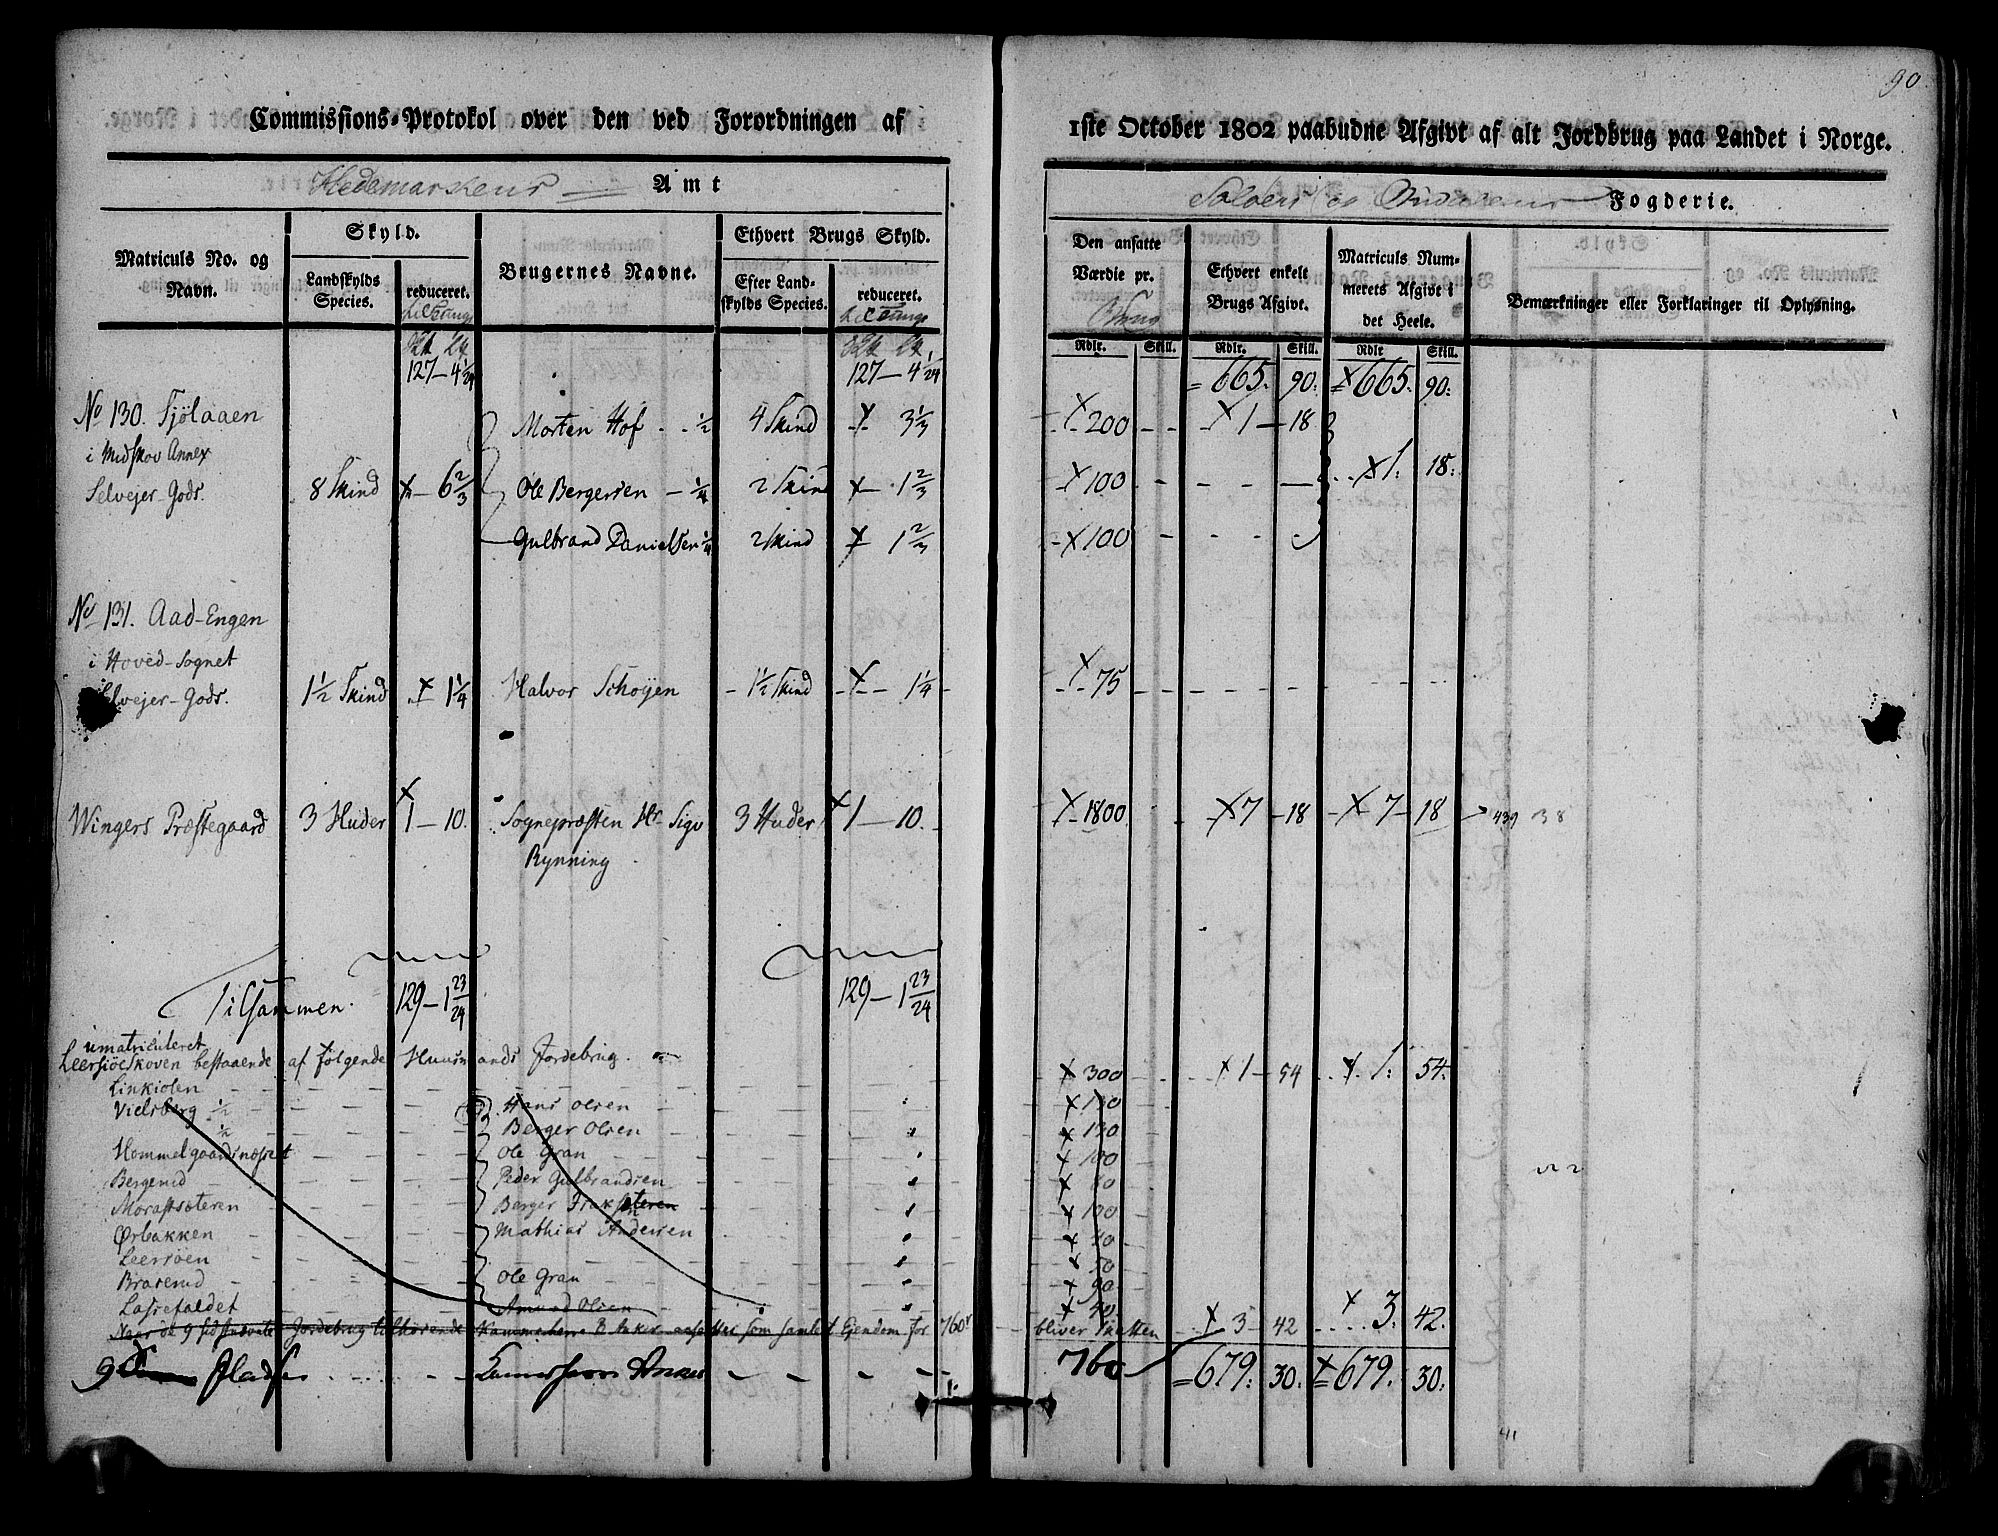 90
Commissions-Protokol over den ved Forordningen af 1ste October 1802 paabudne Afgivt af alt Jordbrug paa Landet i Norge.
Hedemarkens Amt
Soløers og Fogderie.
Matriculs No. og Navn.
Skyld.
Landskylds Species.
reduceret.
Brugernes Navne.
Ethvert Brugs Skyld.
Efter Landskylds Species.
reduceret.
Den ansatte Værdie pr.
Brug
Rdlr. Skill.
Ethvert enkelt Brugs Afgivt.
Rdlr. Skill.
Matriculs Nummerets Afgivt i det Heele.
Rdlr Skill.
Bemærkninger eller Forklaringer til Oplysning.
127 — 4 1/24 127 — 4 1/24 665. 90. 665. 90.
No 130. Fjølaaen Morten Hof 1/2 4 Skind 3 1/3 200 1 — 18
i Midskov Annex
Selvejer-Gods. 8 Skind 6 2/3 Ole Bergersen — 1/4 2 Skind 1 2/3 100 1. 18.
Gulbrand Danielsen 1/4 2 Skind 1 2/3 100
No 131. Aad-Engen
i Hoved-Sognet
Selvejer-Gods. 1 1/2 Skind 1 1/4 Halvor Schøyen 1 1/2 Skind 1 1/4 75
Wingers Præstegaard 3 Huder 1 — 10. Sognepræsten Hr Sigv 3 Huder 1 — 10. 1800 7 — 18 7 — 18 439 38
Rynning
Tilsammen. 129 — 1 23/24 129 — 1 23/24
umatriculeret
Leersiöe Skoven bestaaende af følgende Huusmands Jordebrug. 300 1 — 54 1. 54.
Linkiolen
Vielsberg 1/2 Hans Olsen
1/2 Berger Olsen
Hommelgaardsnæsset Ole Gran 100
Bergerud Peder Gulbrandsen
Morastsæteren Berger 100
Ørbakken Mathias Andersen
Leersøen
Braserud Ole Gran
Lassefaldet Amund Olsen
Naar de 9 sidstnævnte Jordebrug tilhørende Kammerherre B Anker som samlet Ejendom for 760r bliver Skatten 3 — 42 3. 42.
9 Pladser Kammerherre Anker 760 679. 30. 679. 30.
41